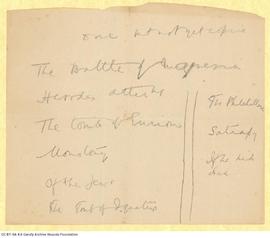 not yet
The Battle of Magnesia
Herodes Atticus
The tomb of Eurion
Monotony
Of the Jews
The Tomb of Ignatius
The Philhellene
Satrapy
Of the
CC-BY-SA 4.0 Cavafy Archive Onassis Foundation